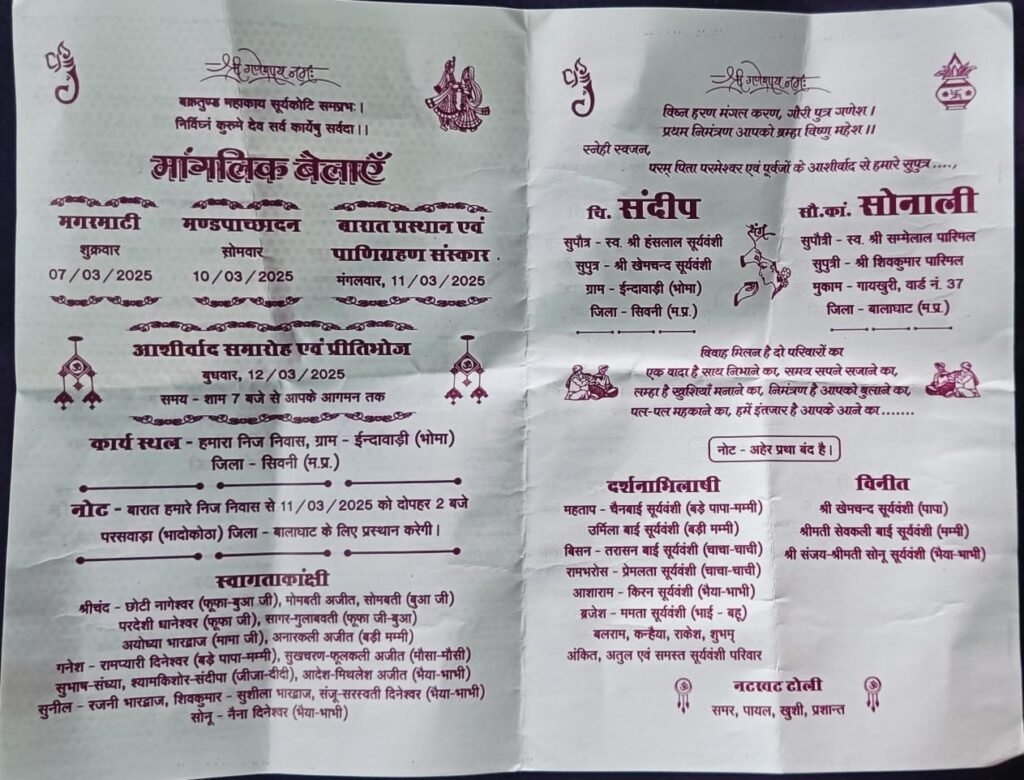 श्री गणेशाय नमः
बक्रतुण्ड महाकाय सूर्यकोटि समप्रभः।
निर्विघ्नं कुरुमे देव सर्व कार्येषु सर्वदा।।
मांगलिक बेलाएँ
मगरमाटी
शुक्रवार
07/03/2025
मण्डपाच्छादन
सोमवार
10/03/2025
बारात प्रस्थान एवं
पाणिग्रहण संस्कार
मंगलवार, 11/03/2025
आशीर्वाद समारोह एवं प्रीतिभोज
बुधवार, 12/03/2025
समय - शाम 7 बजे से आपके आगमन तक
कार्य स्थल - हमारा निज निवास, ग्राम - ईन्दावाड़ी (भोमा)
जिला - सिवनी (म.प्र.)
नोट - बारात हमारे निज निवास से 11/03/2025 को दोपहर 2 बजे
परसवाड़ा (भादोकोठा) जिला - बालाघाट के लिए प्रस्थान करेगी।
स्वागताकांक्षी
श्रीचंद - छोटी नागेश्वर (फूफा-बुआ जी), मोमबती अजीत, सोमबती (बुआ जी)
परदेशी धानेश्वर (फूफा जी), सागर-गुलाबवती (फूफा जी-बुआ)
अयोध्या भारद्वाज (मामा जी), अनारकली अजीत (बड़ी मम्मी)
गनेश - रामप्यारी दिनेश्वर (बड़े पापा-मम्मी), सुखचरण-फूलकली अजीत (मौसा-मौसी)
सुभाष-संध्या, श्यामकिशोर-संदीपा (जीजा-दीदी), आदेश-मिथलेश अजीत (भैया-भाभी)
सुनील - रजनी भारद्वाज, शिवकुमार - सुशीला भारद्वाज, संजू-सरस्वती दिनेश्वर (भैया-भाभी)
सोनू - नैना दिनेश्वर (भैया-भाभी)
श्री गणेशाय नमः
विघ्न हरण मंगल करण, गौरी पुत्र गणेश।
प्रथम निमंत्रण आपको ब्रम्हा विष्णु महेश।।
स्नेही स्वजन,
परम् पिता परमेश्वर एवं पूर्वजों के आशीर्वाद से हमारे सुपुत्र ....,
चि. संदीप
सुपौत्र - स्व. श्री हंसलाल सूर्यवंशी
सुपुत्र - श्री खेमचन्द सूर्यवंशी
ग्राम - ईन्दावाड़ी (भोमा)
जिला - सिवनी (म.प्र.)
संग
सौ.कां. सोनाली
सुपौत्री - स्व. श्री सम्मेलाल पारिमल
सुपुत्री - श्री शिवकुमार पारिमल
मुकाम - गायखुरी, वार्ड नं. 37
जिला - बालाघाट (म.प्र.)
विवाह मिलन है दो परिवारों का
एक वादा है साथ निभाने का, समय सपने सजाने का,
लम्हा है खुशियाँ मनाने का, निमंत्रण है आपको बुलाने का,
पल-पल महकाने का, हमें इंतजार है आपके आने का.......
नोट - अहेर प्रथा बंद है।
दर्शनाभिलाषी
महताप - चैनबाई सूर्यवंशी (बड़े पापा-मम्मी)
उर्मिला बाई सूर्यवंशी (बड़ी मम्मी)
बिसन - तरासन बाई सूर्यवंशी (चाचा-चाची)
रामभरोस - प्रेमलता सूर्यवंशी (चाचा-चाची)
आशाराम - किरन सूर्यवंशी (भैया-भाभी)
ब्रजेश - ममता सूर्यवंशी (भाई - बहू)
बलराम, कन्हैया, राकेश, शुभम्
अंकित, अतुल एवं समस्त सूर्यवंशी परिवार
विनीत
श्री खेमचन्द सूर्यवंशी (पापा)
श्रीमती सेवकली बाई सूर्यवंशी (मम्मी)
श्री संजय-श्रीमती सोनू सूर्यवंशी (भैया-भाभी)
नटखट टोली
समर, पायल, खुशी, प्रशान्त